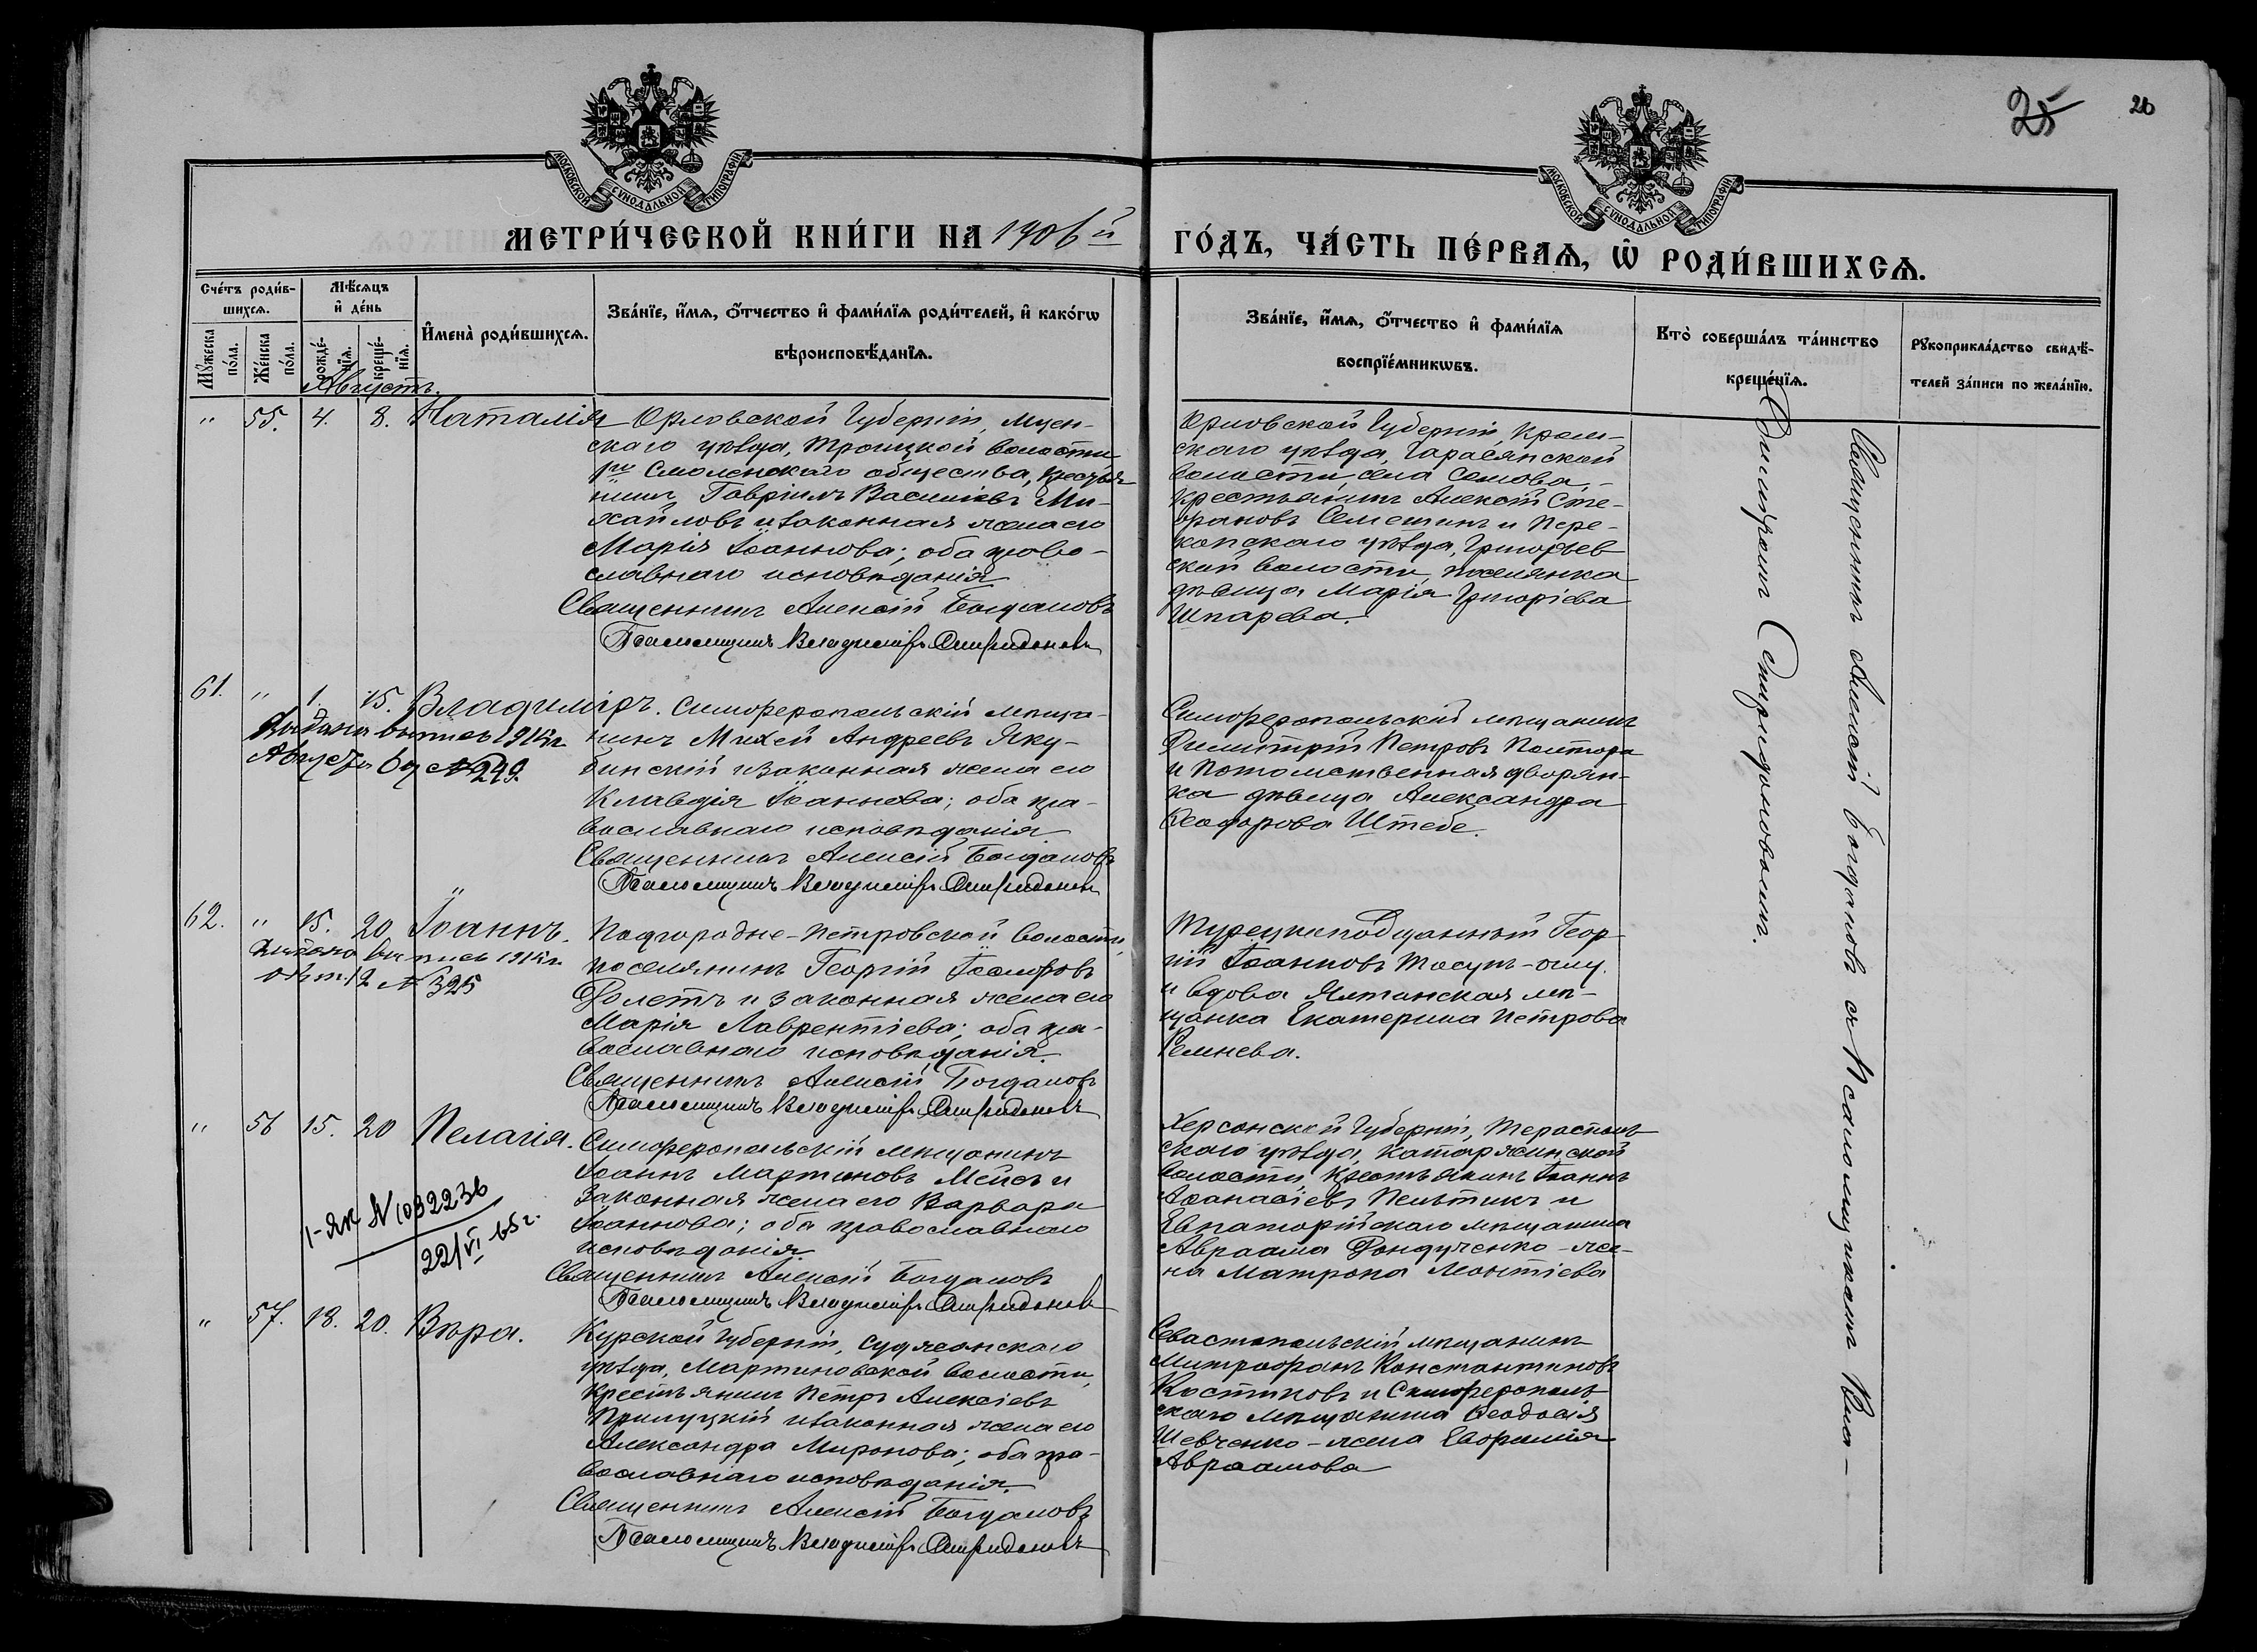 25
26
МОСКОВСКОЙ СѴНОДАЛЬНОЙ ТИПОГРАФІИ
МОСКОВСКОЙ СѴНОДАЛЬНОЙ ТИПОГРАФІИ
МЕТРИ́ЧЕСКОЙ КНИ́ГИ НА 1906 й
ГО́ДЪ, ЧА́СТЬ ПЕ́РВАѦ, Ѽ РОДИ́ВШИХСѦ.
Сче́тъ роди́в-
шихсѧ.
Мꙋ́жеска
по́ла.
Же́нска
по́ла.
Мѣ́сѧцъ
и҆ де́нь
рожде́-
нїѧ.
креще́-
нїѧ.
И҆мена̀ роди́вшихсѧ.
Зва́нїе, и҆́мѧ, ѻ҆́тчество и҆ фами́лїѧ роди́телей, и҆ како́гѡ
вѣроисповѣ́данїѧ.
Зва́нїе, и҆́мѧ, ѻ҆́тчество и҆ фами́лїѧ
воспрїе́мникѡвъ.
Кто̀ соверша́лъ та́инство
креще́нїѧ.
Рꙋкоприкла́дство свидѣ́-
телей за́писи по жела́нїю.
Августъ.
" 55. 4. 8. Наталія
Орловской Губерніи, Мцен-
скаго уѣзда, Троицкой волости
1го Смоленскаго общества, крестья-
нинъ Гавріилъ Василіевъ Ми-
хайловъ и законная жена его
Марія Іоаннова; оба право-
славнаго исповѣданія
Священникъ Алексій Богдановъ
Псаломщикъ Владиміръ Спиридоновъ
Орловской Губерніи, Кром-
скаго уѣзда,
волости, села
крестьянинъ Алексій Сте-
фановъ Семешинъ и Пере-
копскаго уѣзда, Григорьев-
ской волости, поселянка
дѣвица Марія Григоріева
Шпарева.
61. " 1. 15. Владиміръ.
Выдана выпись 191
Августа 6 д № 249.
Симферопольскій мѣща-
нинъ Михей Андреевъ Яку-
бинскій и законная жена его
Клавдія Іоаннова; оба пра-
вославнаго исповѣданія
Священникъ Алексій Богдановъ
Псаломщикъ Владиміръ Спиридоновъ
Симферопольскій мѣщанинъ
Димитрій Петровъ Полтора
и потомственная дворян-
ка дѣвица Александра
Ѳеодорова Штебе.
62. " 15. 20 Іоаннъ.
Выдана выпись 191
Окт. 12 № 325
Подгородне-Петровской волости,
поселянинъ Георгій
и законная жена его
Марія Лаврентіева; оба пра-
вославнаго исповѣданія.
Священникъ Алексій Богдановъ
Псаломщикъ Владиміръ Спиридоновъ
Турецкоподданный Геор-
гій Іоанновъ
и вдова Ялтинская мѣ-
щанка Екатерина Петрова
Ремнева.
" 56 15. 20 Пелагія.
1-ЯК № 1092236
22/VI 65 г.
Симферопольскій мѣщанинъ
Іоаннъ Мартиновъ Мейсъ и
законная жена его Варвара
Іоаннова; оба православнаго
исповѣданія.
Священникъ Алексій Богдановъ
Псаломщикъ Владиміръ Спиридоновъ
Херсонской Губерніи, Тираспол-
скаго уѣзда, Катаржинской
волости, крестьянинъ Іоаннъ
Аѳанасіевъ и
Евпаторійскаго мѣщанина
Авраама Фондученко - же-
на Матрона Леонтіева
" 57. 18. 20. Вѣра.
Курской Губерніи, Суджанскаго
уѣзда, Мартиновской волости,
крестьянинъ Петръ Алексіевъ
Прилуцкій и законная жена его
Александра Миронова; оба пра-
вославнаго исповѣданія.
Священникъ Алексій Богдановъ
Псаломщикъ Владиміръ Спиридоновъ
Севастопольскій мѣщанинъ
Митрофанъ Константиновъ
Костиковъ и Симферополь-
скаго мѣщанина Ѳеодосія
Шевченко - жена Евфимія
Авраамова
Священникъ Алексій Богдановъ съ Псаломщикомъ Вла-
диміромъ Спиридоновымъ.